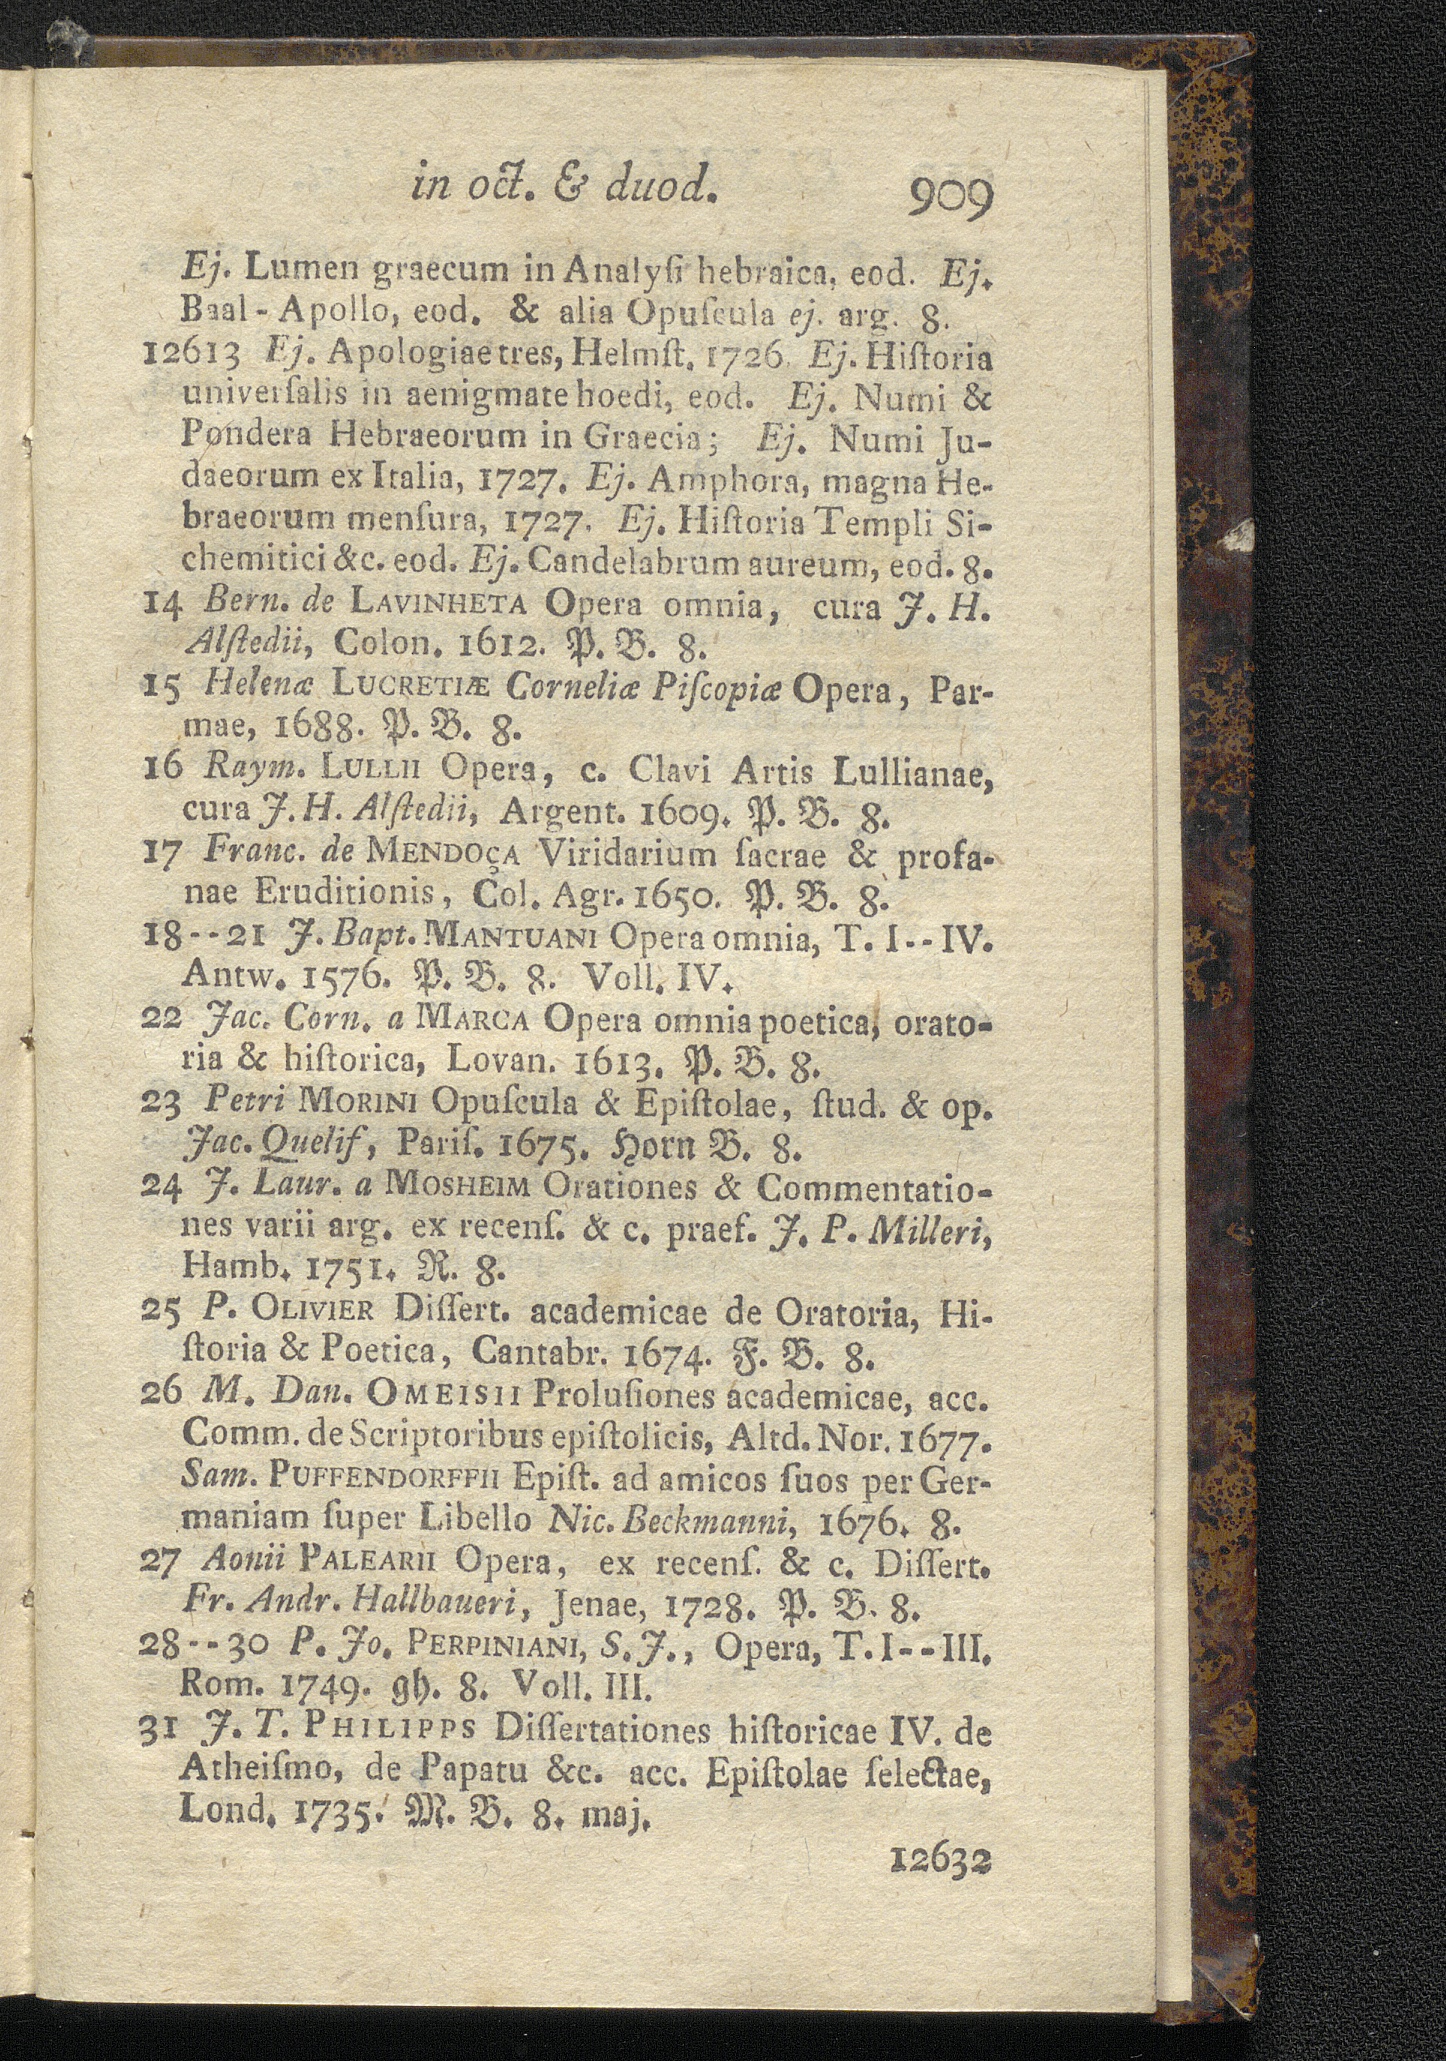 in oct. & duod. 909
Ej. Lumen graecum in Analyſi hebraica, eod. Ej.
Baal-Apollo, eod. & alia Opuſcula ej. arg. 8.
12613 Ej. Apologiae tres, Helmſt. 1726. Ej. Hiſtoria
univerſalis in aenigmate hoedi, eod. Ej. Numi &
Pondera Hebraeorum in Graecia; Ej. Numi Ju-
daeorum ex Italia, 1727. Ej. Amphora, magna He-
braeorum menſura, 1727. Ej. Hiſtoria Templi Si-
chemitici &c. eod. Ej. Candelabrum aureum, eod. 8.
14 Bern. de LAVINHETA Opera omnia, cura J. H.
Alſtedii, Colon. 1612. P. B. 8.
15 Helenæ LUCRETIÆ Corneliæ Piſcopiæ Opera, Par-
mae, 1688. P. B. 8.
16 Raym. LULLII Opera, c. Clavi Artis Lullianae,
cura J. H. Alſtedii, Argent. 1609. P. B. 8.
17 Franc. de MENDOÇA Viridarium ſacrae & profa-
nae Eruditionis, Col. Agr. 1650. P. B. 8.
18--21 J. Bapt. MANTUANI Opera omnia, T. I--IV.
Antw. 1576. P. B. 8. Voll. IV.
22 Jac. Corn. a MARCA Opera omnia poetica, orato-
ria & hiſtorica, Lovan. 1613. P. B. 8.
23 Petri MORINI Opuſcula & Epiſtolae, ſtud. & op.
Jac. Quelif, Pariſ. 1675. Horn B. 8.
24 J. Laur. a MOSHEIM Orationes & Commentatio-
nes varii arg. ex recenſ. & c. praef. J. P. Milleri,
Hamb. 1751. R. 8.
25 P. OLIVIER Diſſert. academicae de Oratoria, Hi-
ſtoria & Poetica, Cantabr. 1674. F. B. 8.
26 M. Dan. OMEISII Proluſiones academicae, acc.
Comm. de Scriptoribus epiſtolicis, Altd. Nor. 1677.
Sam. PUFFENDORFFII Epiſt. ad amicos ſuos per Ger-
maniam ſuper Libello Nic. Beckmanni, 1676. 8.
27 Aonii PALEARII Opera, ex recenſ. & c. Diſſert.
Fr. Andr. Hallbaueri, Jenae, 1728. P. B. 8.
28--30 P. Jo. PERPINIANI, S. J., Opera, T. I--III.
Rom. 1749. gh. 8. Voll. III.
31 J. T. PHILIPPS Diſſertationes hiſtoricae IV. de
Atheiſmo, de Papatu &c. acc. Epiſtolae ſelectae,
Lond. 1735. M. B. 8. maj.
12632